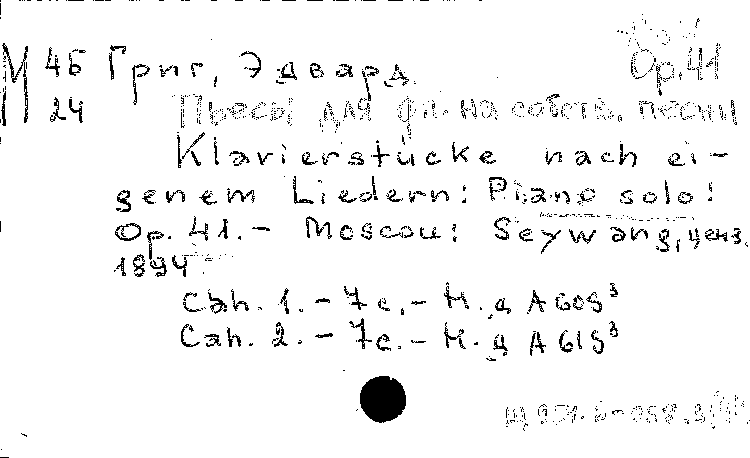 М 45 Григ, Эдвард. Op.41
24 Пьесы для фп. на собств. песни
Klavierstücke nach ei-
genem Liedern: Piano solo:
Op. 41. - Moscou: Seywang, ценз.
1894
Cah. 1. - 7c. - Н.д A 609³
Cah. 2. - 7c. - Н.д A 619³